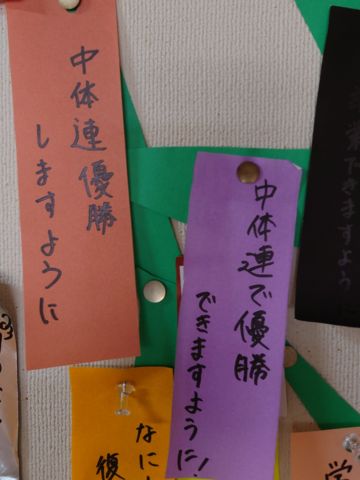 中体連優勝
しますように
中体連で優勝
できますように!
なに
復
学
できますように